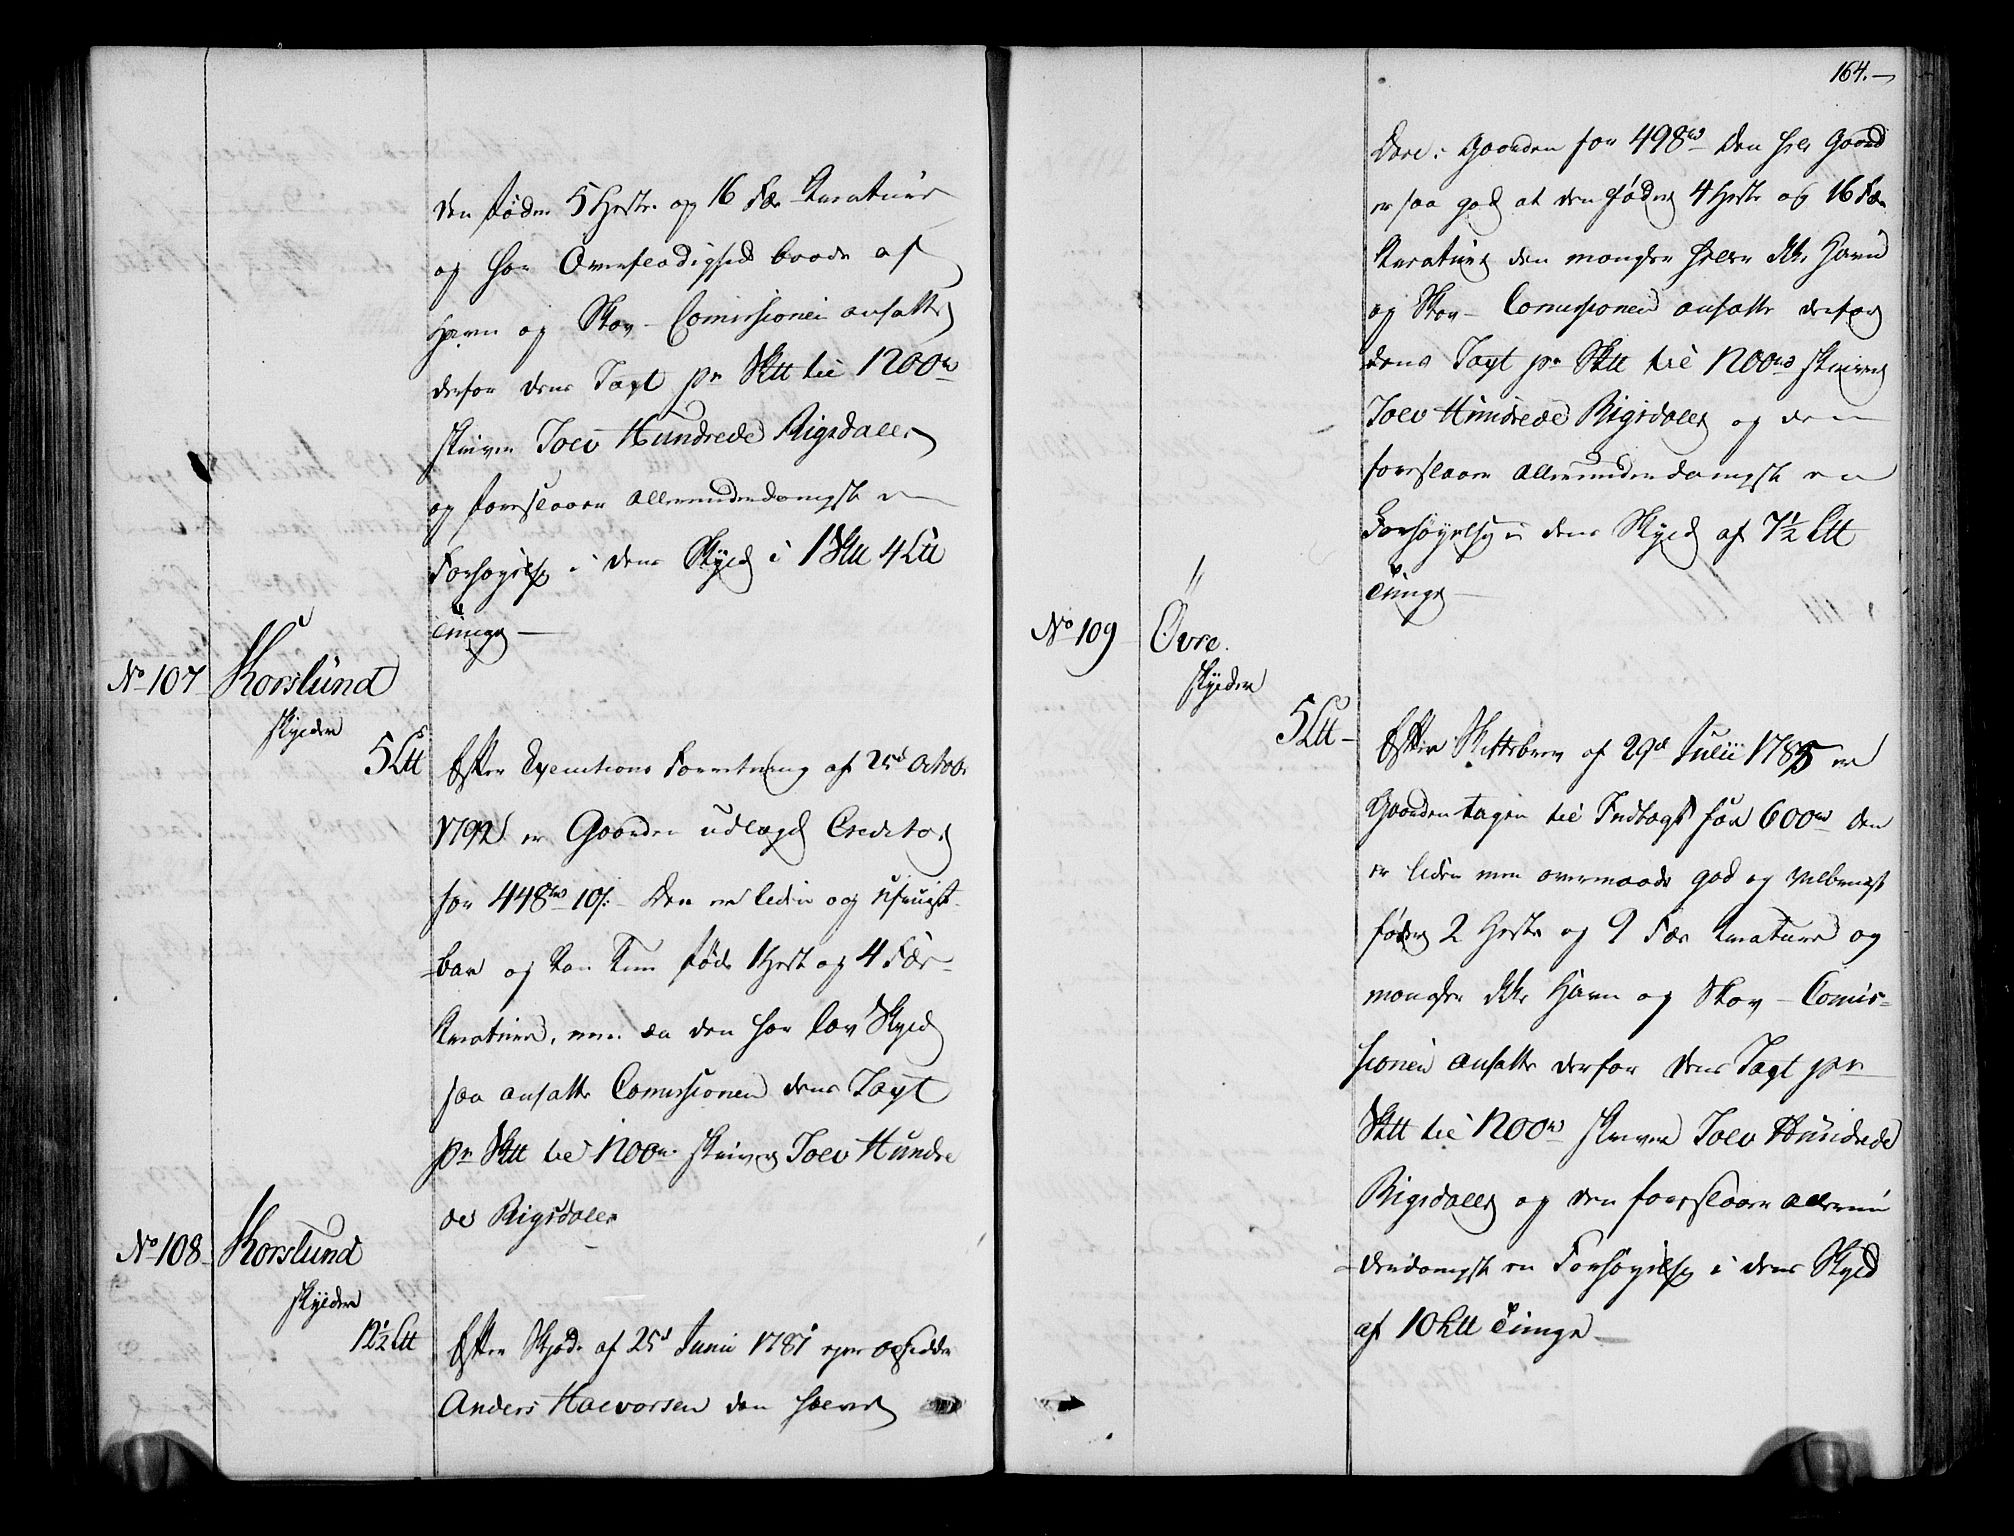 den føder 5 Heste og 16 Fæe Kreaturer
og har Overflødighed baade af
Havn og Skov – Comissionen ansatte
derfor dens Taxt pr Sktt til 1200rd
skriver Tolv Hundrede Rigsdaler
og foreslaaer allerunderdanigst en
Forhøyelse i dens Skyld i 1 Sktt 4 Ltt
Tunge –
No 107 Korslund
skylder
5 Ltt
Efter Executions Forretning af 25d Octobr
1792 er Gaarden udlagd Creditor
for 448rd 10s. – Den er liden og ufrugt-
-bar og kan kun føde 1 Hest og 4 Fæe-
Kreaturer, men da den har lav Skyld
saa ansatte Comissionen dens Taxt
pr Sktt til 1200rd skriver Tolv Hundre
de Rigsdaler
No 108 Korslund
skylder
12½ Ltt
Efter Skjøde af 25d Junii 1781 ejer opsidder
Anders Halvorsen den halve
164. –
Gaarden for 498rd Den hele Gaard
er saa god at den føder 4 Heste og 16 Fæe
Kreaturer den mangler heller ikke Havn
og Skov – Comissionen ansatte derfor
dens Taxt pr Sktt til 1200rd skriver
Tolv Hundrede Rigsdaler og den
foreslaaer allerunderdanigst en
Forhøyelse i dens Skyld af 7½ Ltt
Tunge –
No 109 Øvre
skylder
5 Ltt –
Efter Skiftebrev af 29d Julii 1785 er
Gaarden tagen til Indtægt for 600rd den
er liden men overmaade god og velbrugt
føder 2 Heste og 9 Fæe Kreaturer og
mangler ikke Havn og Skov – Comis-
sionen ansatte derfor dens Taxt pr
Sktt til 1200rd skriver Tolv Hundrede
Rigsdaler og den foreslaaer allerun
-derdanigst en Forhøyelse i dens Skyld
af 10 Ltt Tunge –